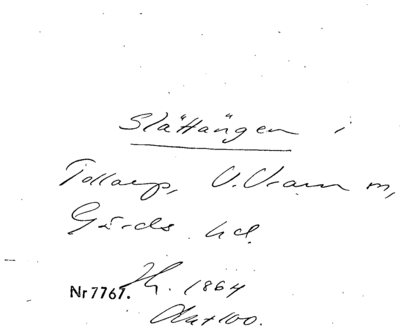 Slättängen i
Tollarp, V. Vram m,
Gärds hd.
Nr 7767. Th. 1864
Akt 100.